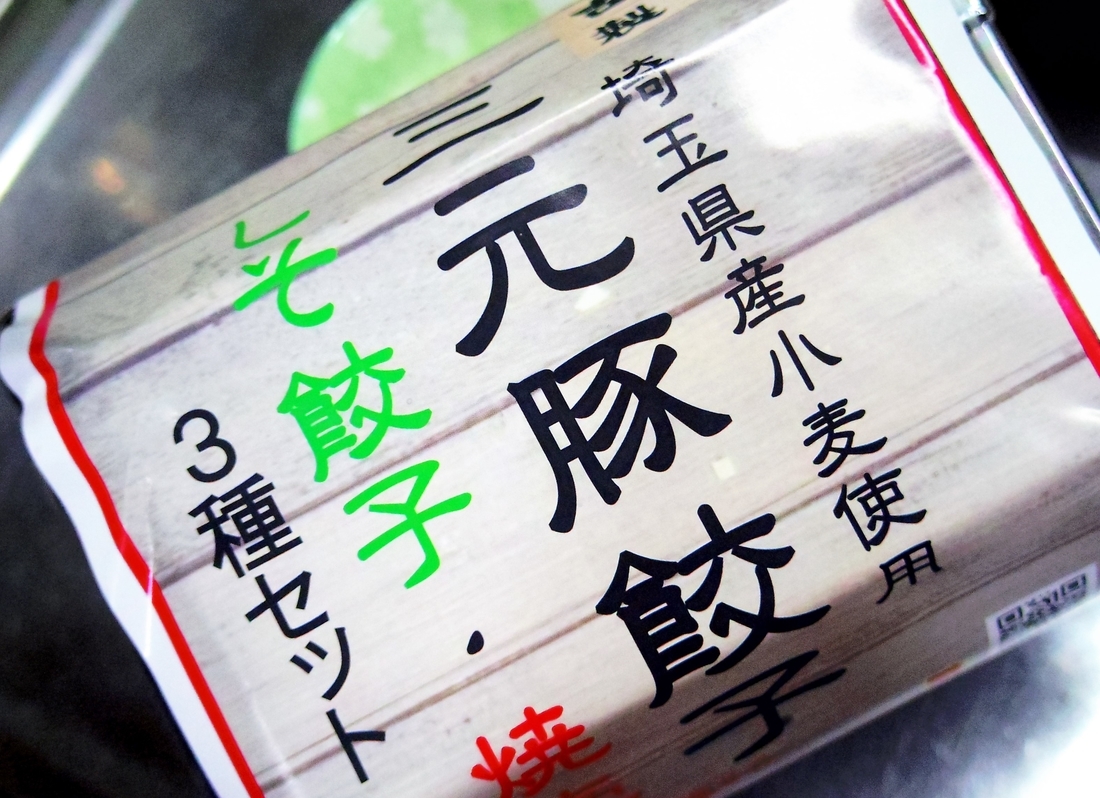 埼玉県産小麦使用
三元豚餃子
しそ餃子・焼
3種セット